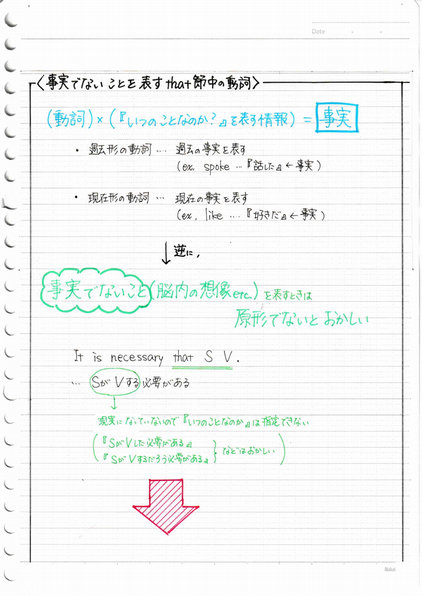 Date
〈事実でないことを表すthat節中の動詞〉
(動詞)×(『いつのことなのか?』を表す情報) = 事実
・過去形の動詞 … 過去の事実を表す
(ex. spoke …『話した』←事実)
・現在形の動詞 … 現在の事実を表す
(ex. like …『好きだ』←事実)
逆に,
事実でないこと(脳内の想像etc.)を表すときは
原形でないとおかしい
It is necessary that S V.
… SがVする必要がある
現実になっていないので『いつのことなのか』は指定できない
『SがVした必要がある』
『SがVするだろう必要がある』
などはおかしい